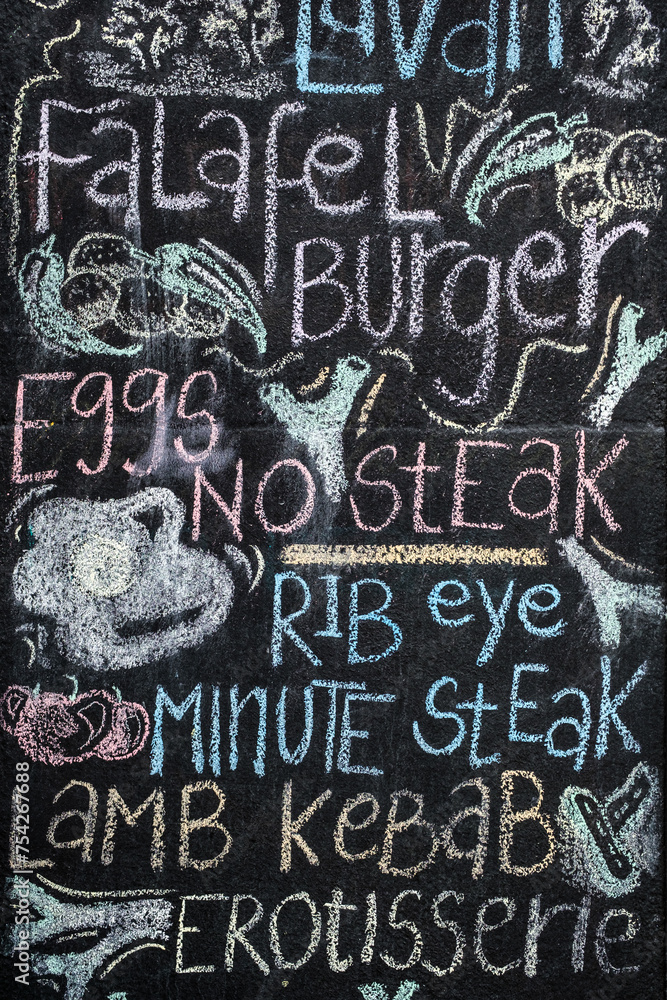 Lavan
Falafel
Burger
Eggs
No Steak
Rib eye
Minute Steak
Lamb Kebab
Erotisserie
Adobe Stock | #754267688